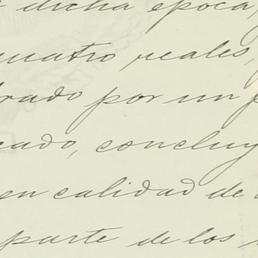 dicha época,
cuatro reales,
por un
concluy
en calidad de
parte de los